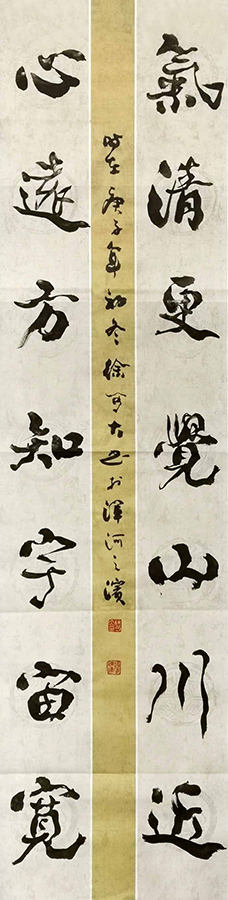 氣清更覺山川近
心遠方知宇宙寬
時在庚子年初冬徐可大書於渾河之濱